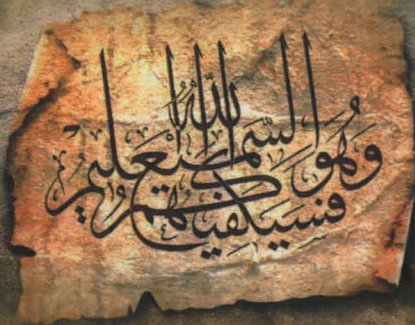 فَسَيَكْفِيكَهُمُ اللّٰهُ
وَهُوَ السَّمِيعُ الْعَلِيمُ